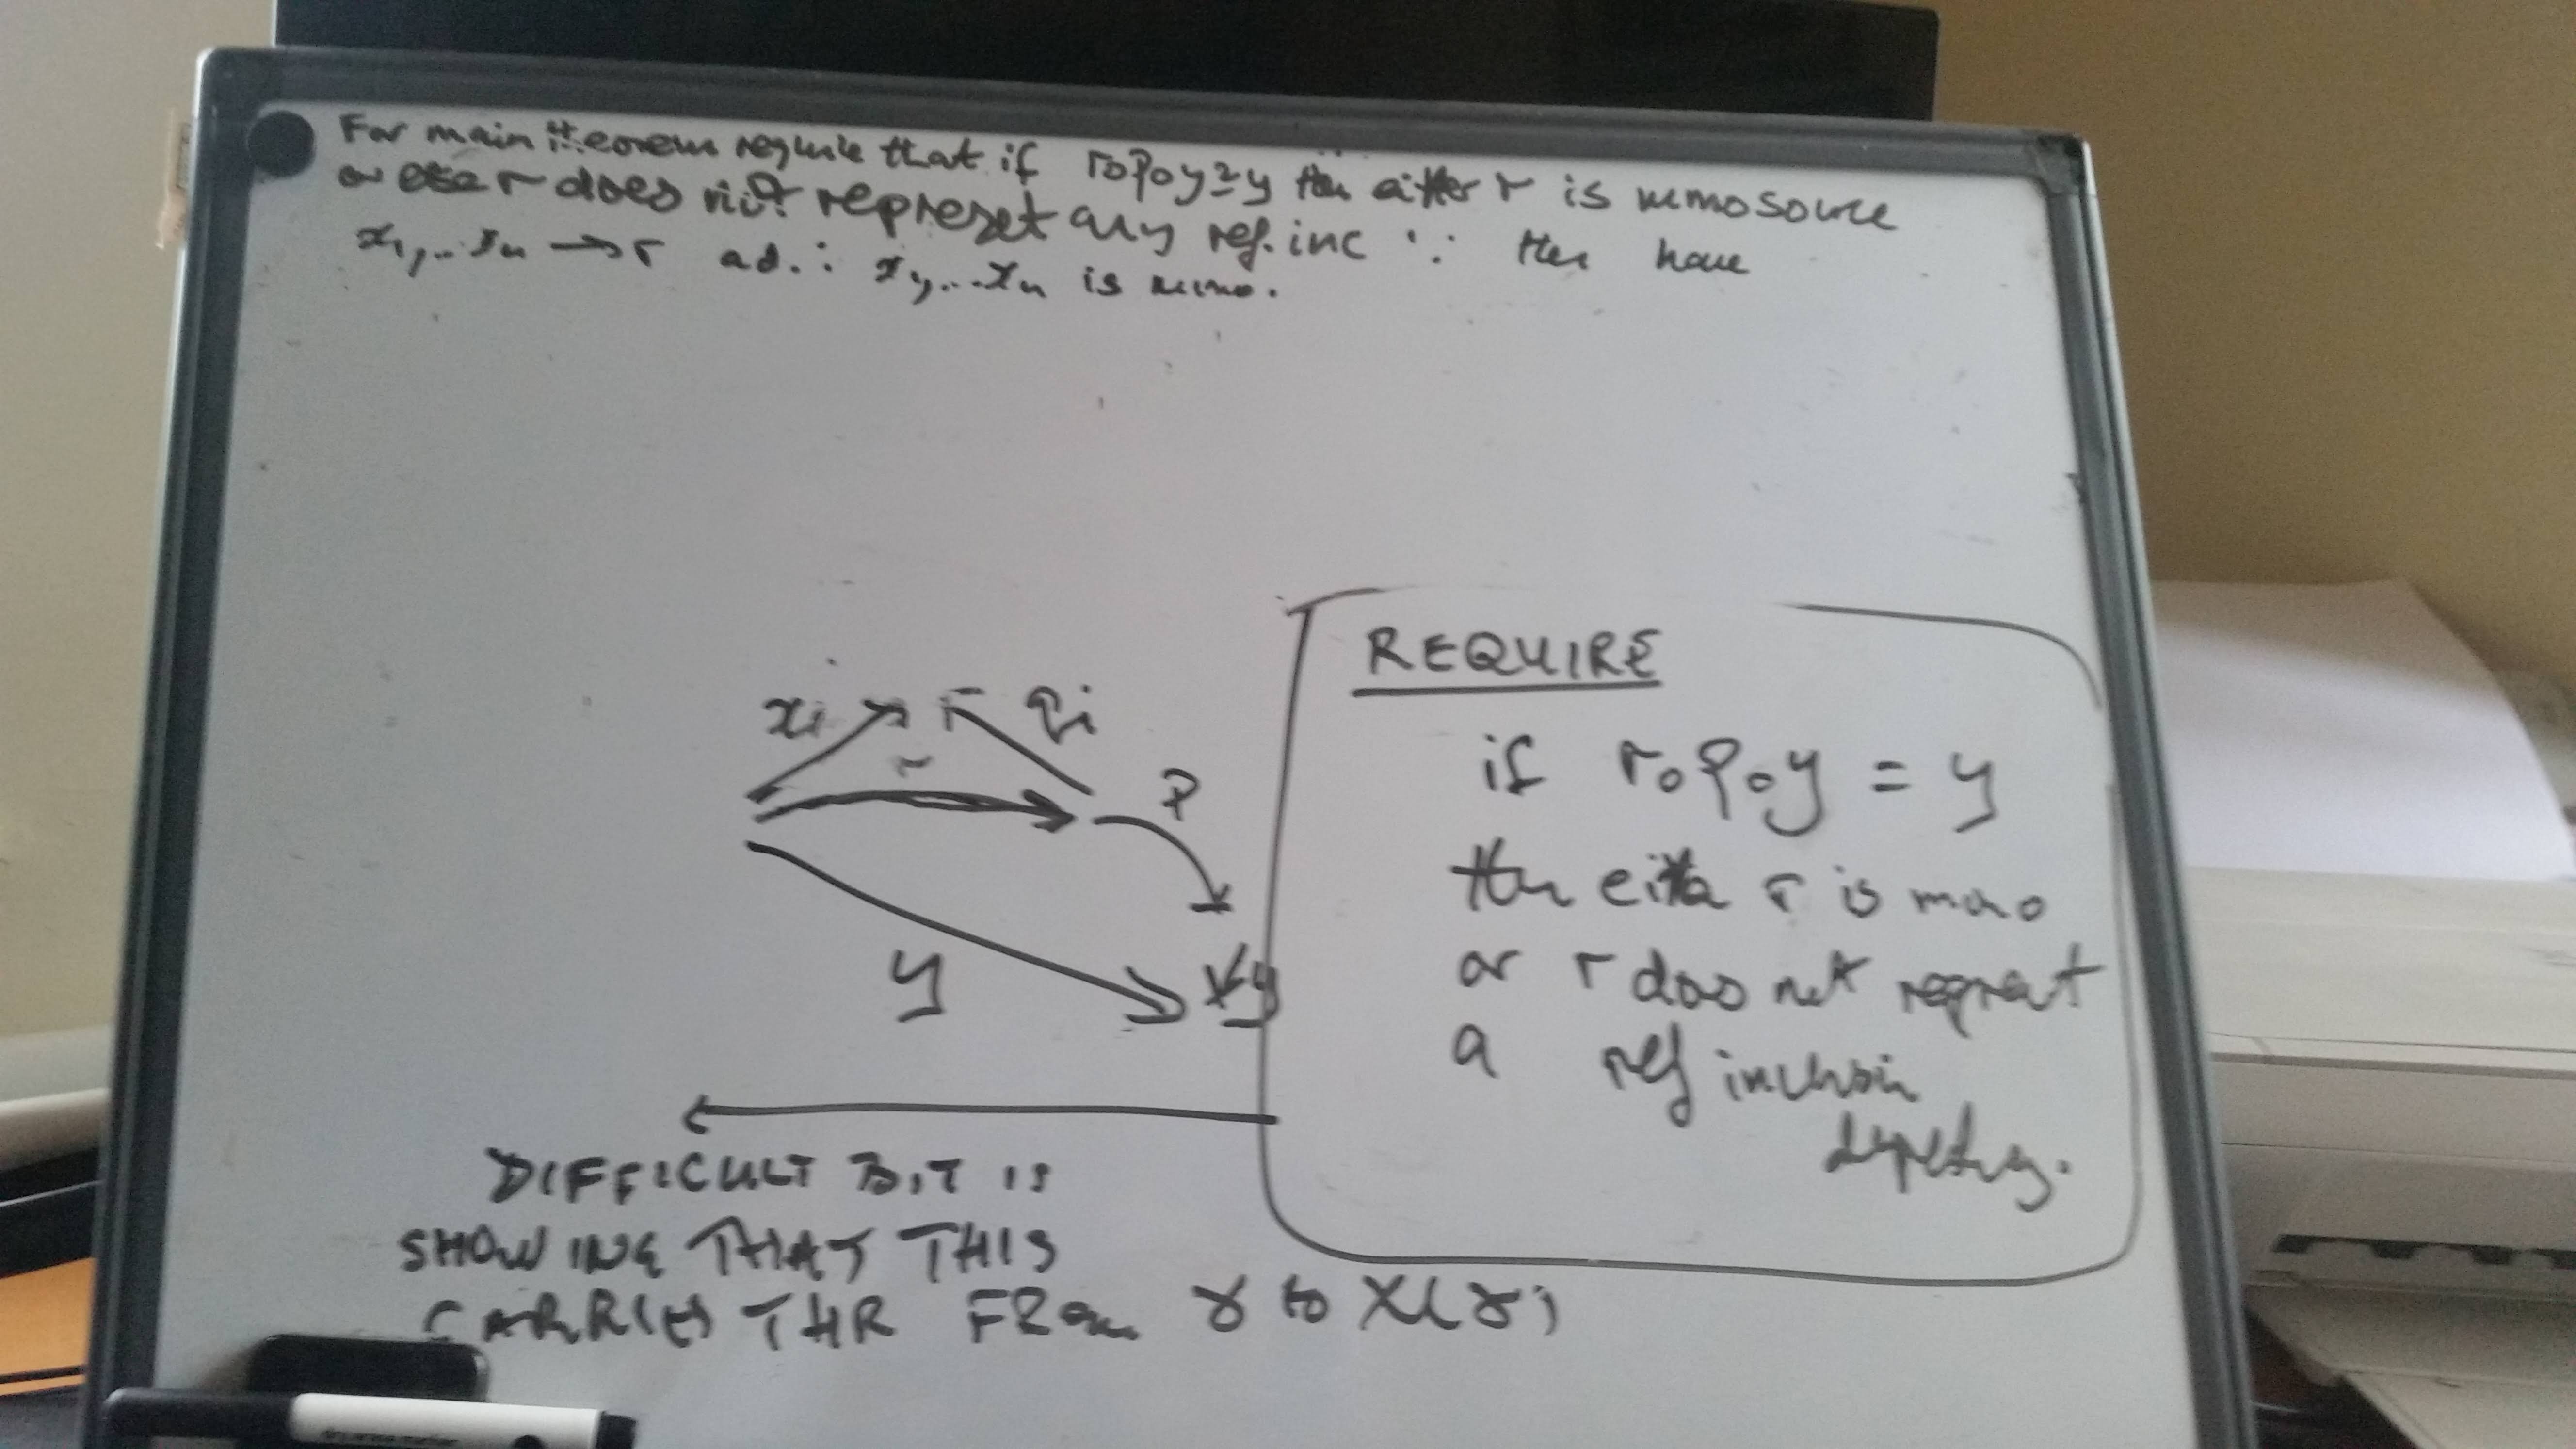 For main theorem require that if r∘p∘y = y then either r is mono source
or else r does not represent any ref. inc ∵ then have
x₁,..xₙ → r ad ∴ x₁,...xₙ is mono.
xᵢ r qᵢ
r
p
y
y
REQUIRE
if r∘p∘y = y
then either r is mono
or r does not represent
a ref inclusion
dependency.
DIFFICULT BIT IS
SHOWING THAT THIS
CARRIES THR FROM γ to X(γ)